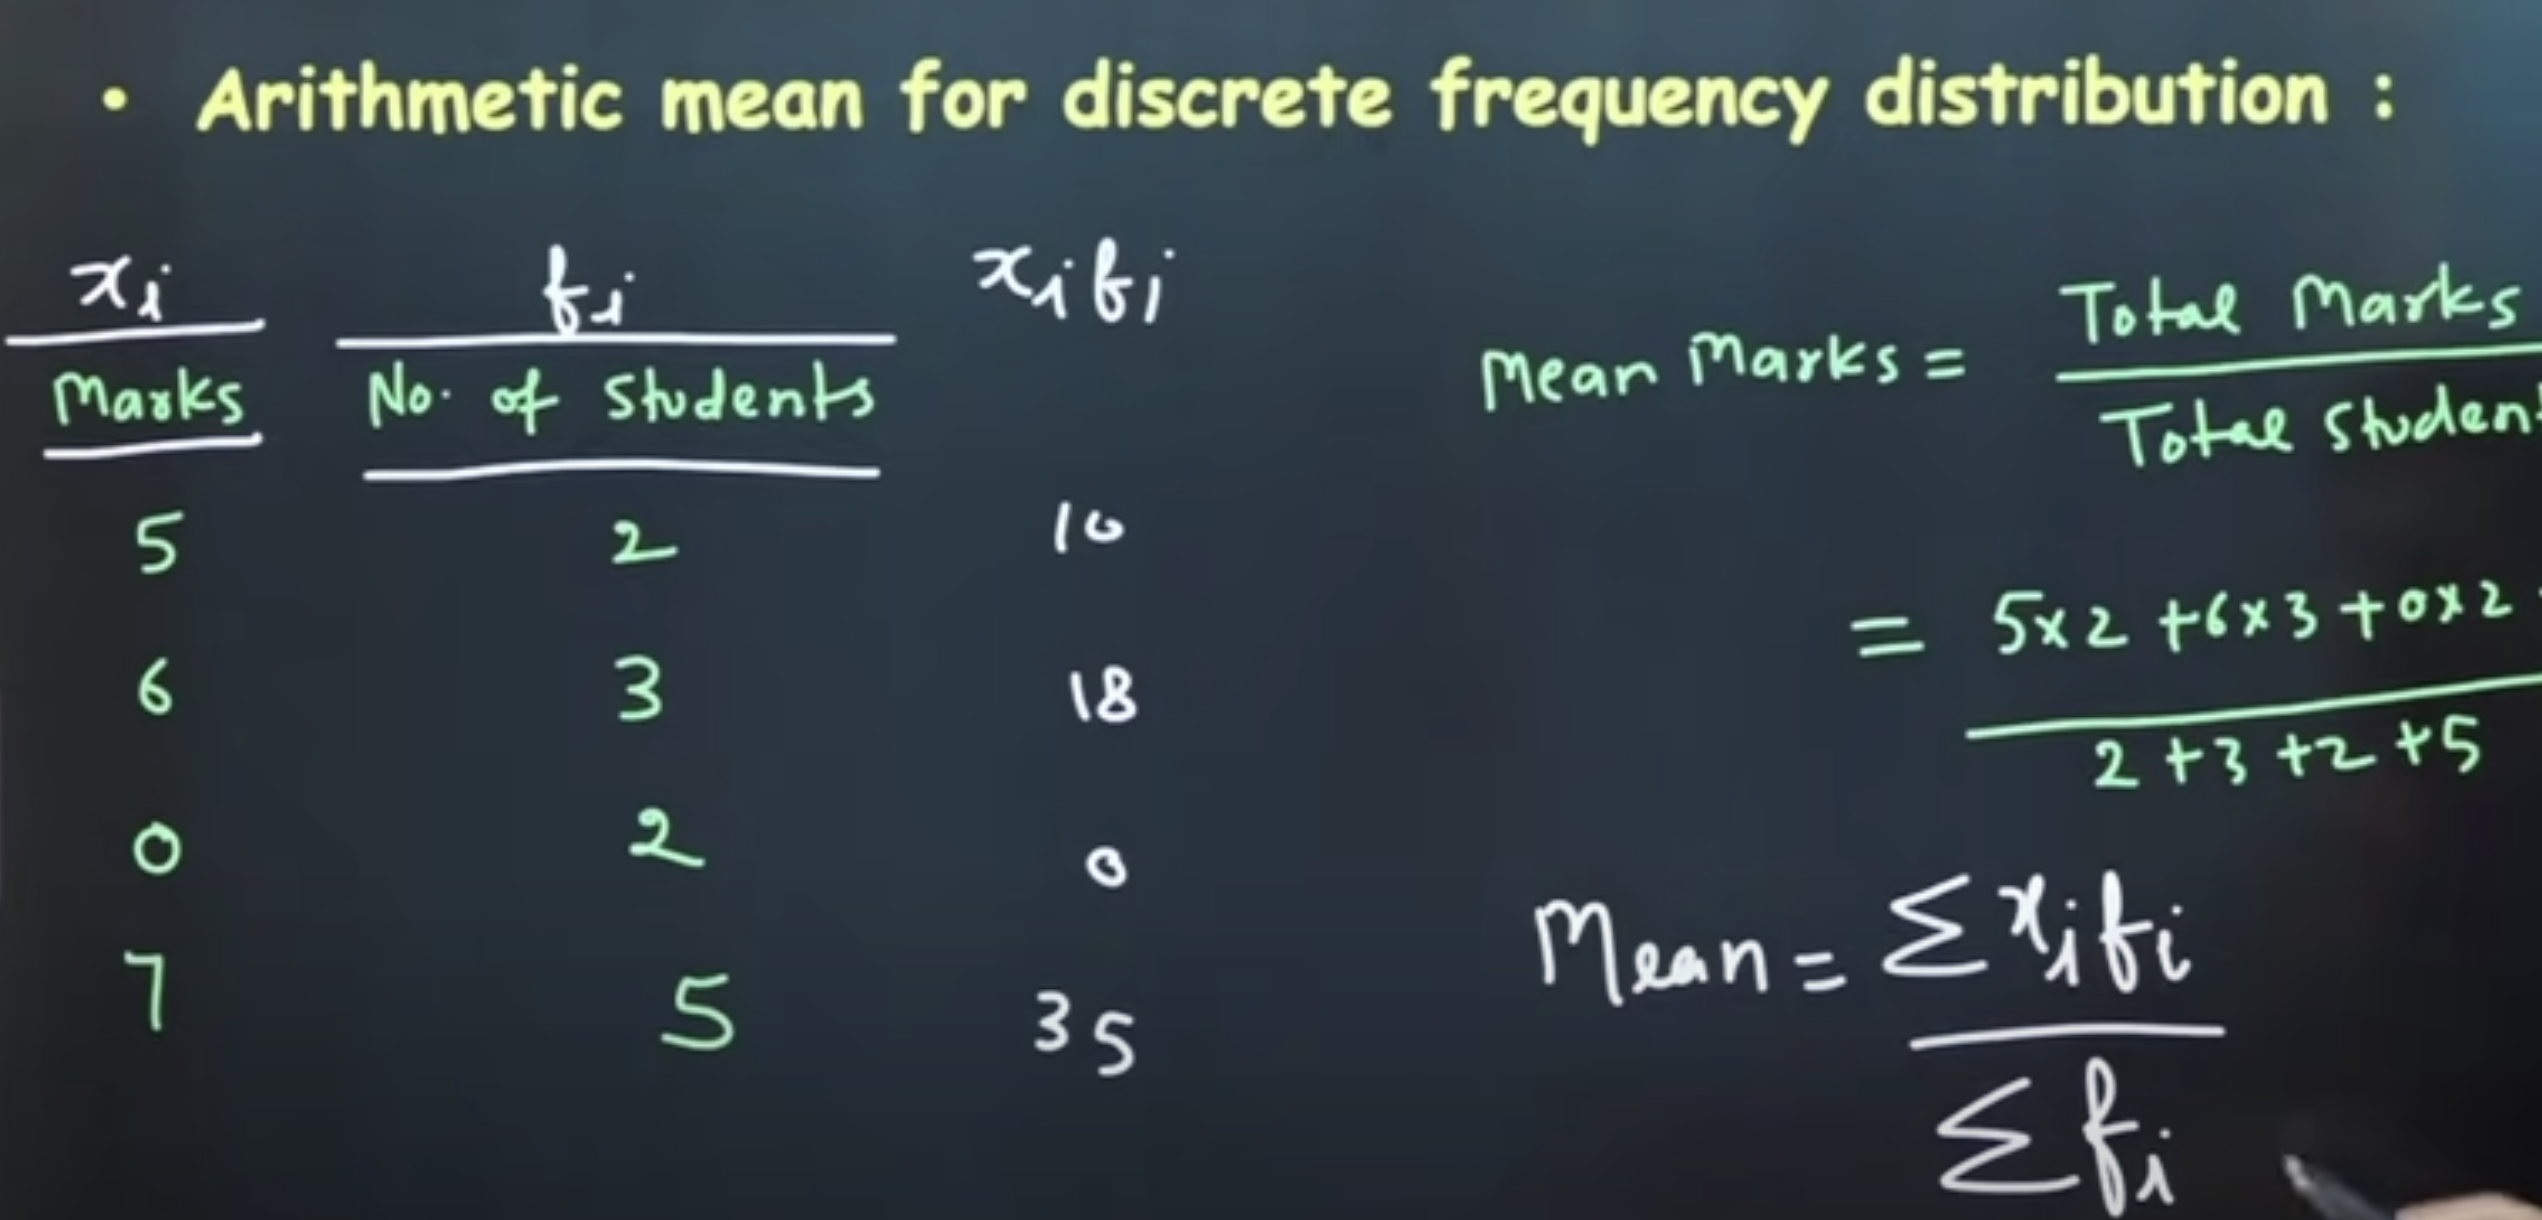 • Arithmetic mean for discrete frequency distribution :
xᵢ fᵢ xᵢfᵢ
Marks No. of Students
5 2 10
6 3 18
0 2 0
7 5 35
Mean Marks = Total Marks / Total Student
= 5×2 +6×3 +0×2 / 2 +3 +2 +5
Mean = Σxᵢfᵢ / Σfᵢ